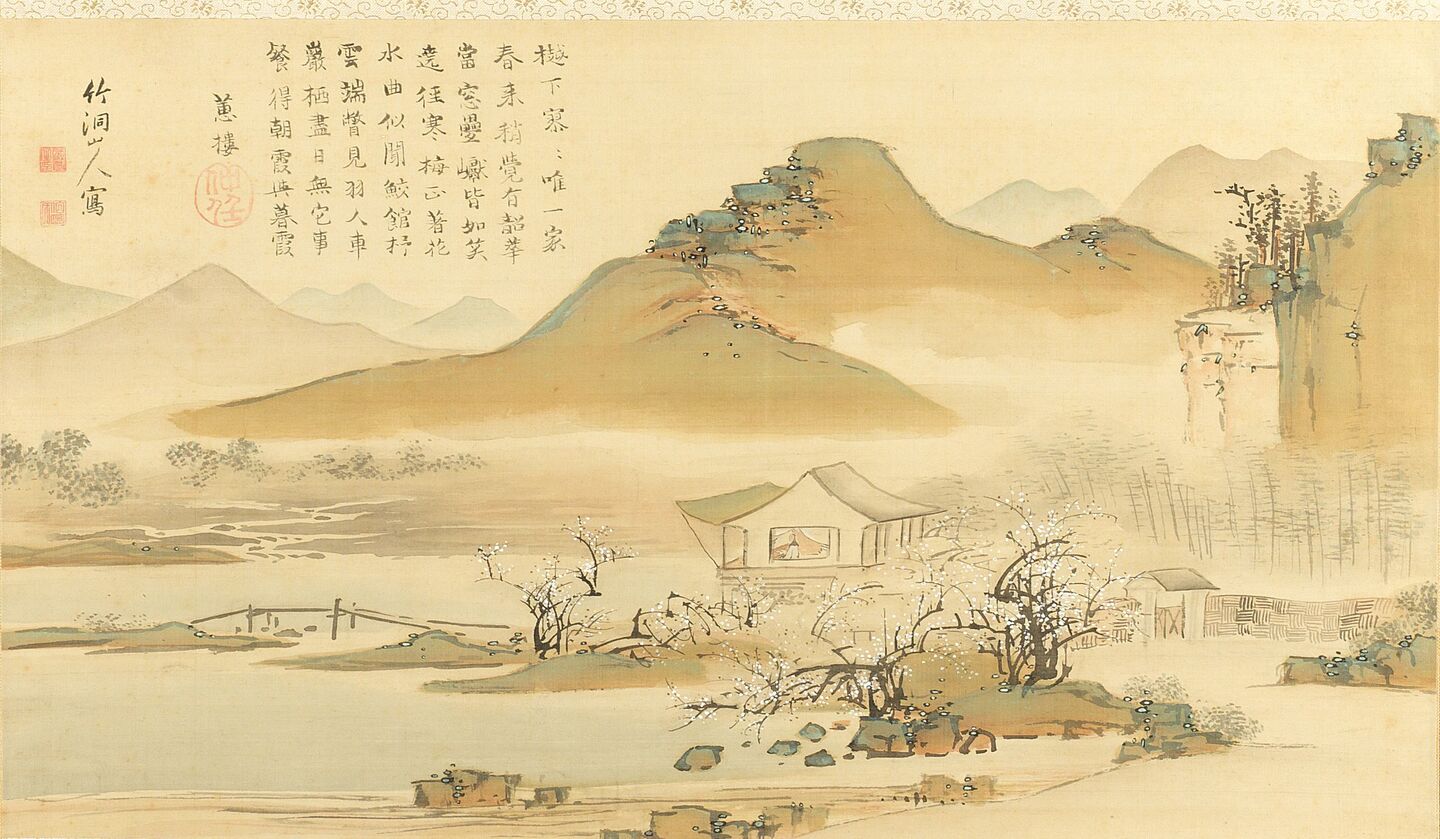 樾下寥〻唯一家
春来稍覺有韶華
當窓疊巘皆如笑
遶徑寒梅正著花
水曲似聞鮫館杼
雲端瞥見羽人車
巖栖盡日無它事
餐得朝霞與暮霞
蕙樓
竹洞山人寫